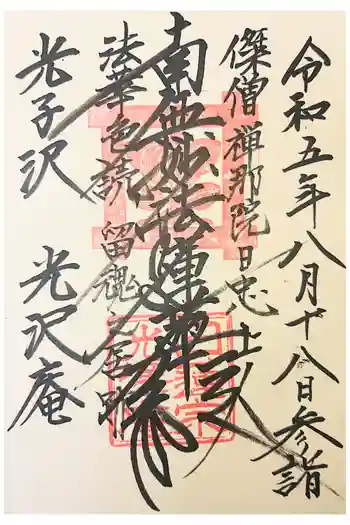 令和五年八月十八日参詣
傑僧 禅那院日忠上人
南無妙法蓮華経
法華色読 留魂之霊跡
光子沢 光沢庵